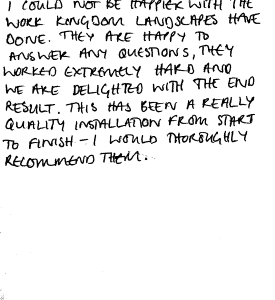 I COULD NOT BE HAPPIER WITH THE
WORK KINGDOM LANDSCAPES HAVE
DONE. THEY ARE HAPPY TO
ANSWER ANY QUESTIONS, THEY
WORKED EXTREMELY HARD AND
WE ARE DELIGHTED WITH THE END
RESULT. THIS HAS BEEN A REALLY
QUALITY INSTALLATION FROM START
TO FINISH - I WOULD THOROUGHLY
RECOMMEND THEM.